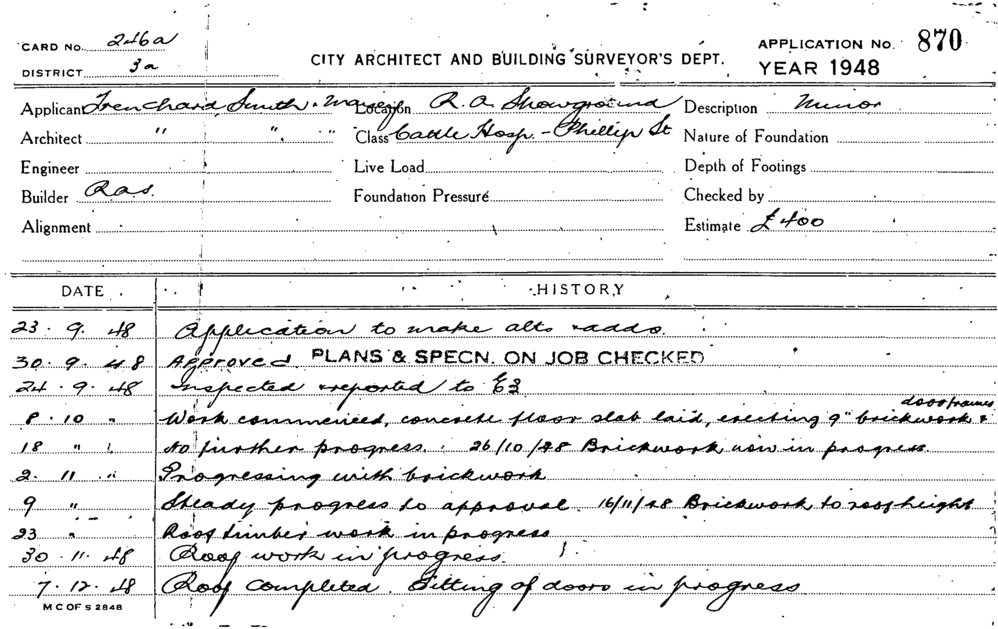 CARD No. 246a
DISTRICT 3a
CITY ARCHITECT AND BUILDING SURVEYOR'S DEPT.
APPLICATION No. 870
YEAR 1948
Applicant Trenchard Smith & Maisey Location R. A. Showground Description Minor
Architect " " " Class Cattle Hosp. - Phillip St Nature of Foundation
Engineer Live Load Depth of Footings
Builder Ras. Foundation Pressure Checked by
Alignment Estimate £400
DATE HISTORY
23 . 9 . 48 Application to make alts & adds.
30 . 9 . 48 Approved PLANS & SPECN. ON JOB CHECKED
24 . 9 . 48 Inspected & reported to E3
doorframes
8 . 10 " Work commenced, concrete floor slab laid, erecting 9" brickwork &
18 " " No further progress. 26/10/48 Brickwork now in progress.
2 . 11 " Progressing with brickwork
9 " Steady progress to approval. 16/11/48 Brickwork to roof height
23 " Roof timber work in progress
30 . 11 . 48 Roof work in progress.
7 . 12 . 48 Roof completed. Fitting of doors in progress
M C OF S 2848